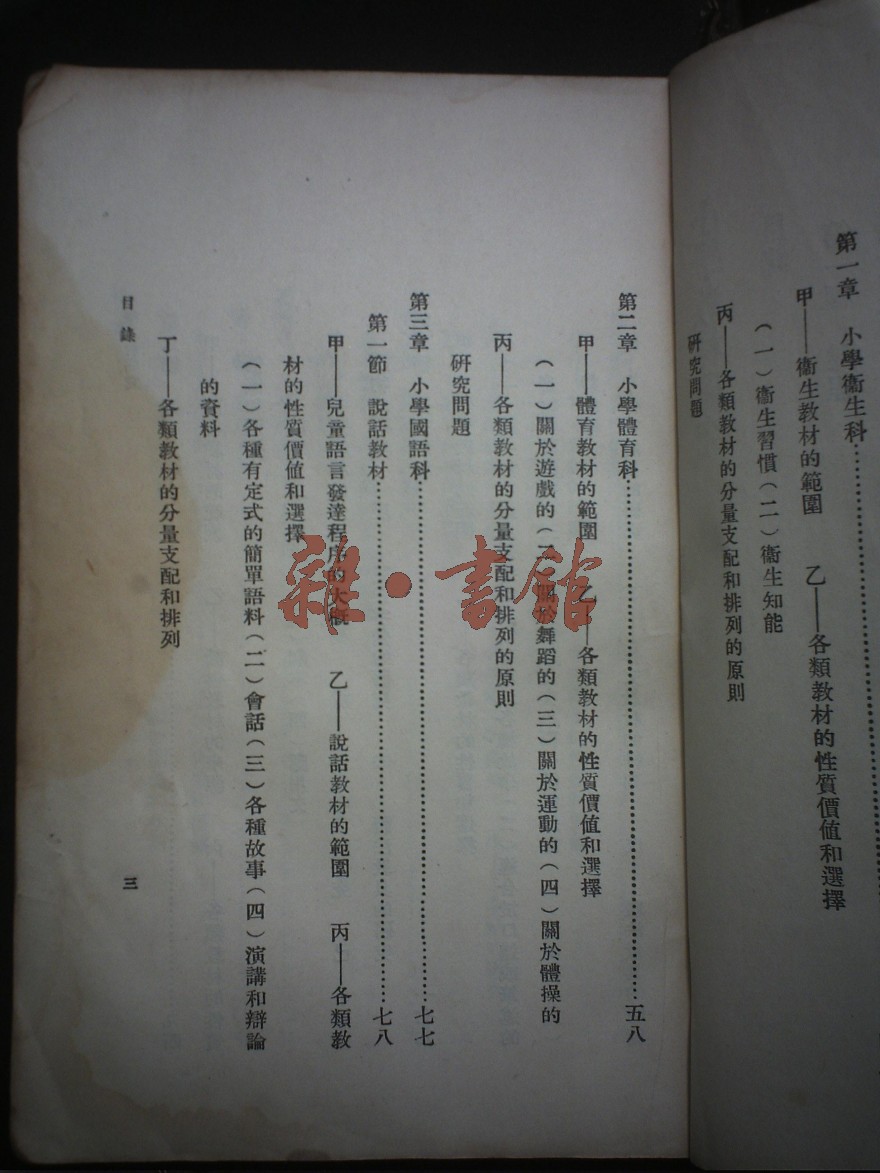 第一章　小學衞生科……
甲——衞生教材的範圍　乙——各類教材的性質價値和選擇
（一）衞生習慣（二）衞生知能
丙——各類教材的分量支配和排列的原則
硏究問題
第二章　小學體育科……五八
甲——體育教材的範圍　乙——各類教材的性質價値和選擇
（一）關於遊戲的（二）關於舞蹈的（三）關於運動的（四）關於體操的
丙——各類教材的分量支配和排列的原則
硏究問題
第三章　小學國語科……七七
第一節　說話教材……七八
甲——兒童語言發達程序的大概　乙——說話教材的範圍　丙——各類教
材的性質價値和選擇
（一）各種有定式的簡單語料（二）會話（三）各種故事（四）演講和辯論
的資料
丁——各類教材的分量支配和排列
目錄
三
雜·書館